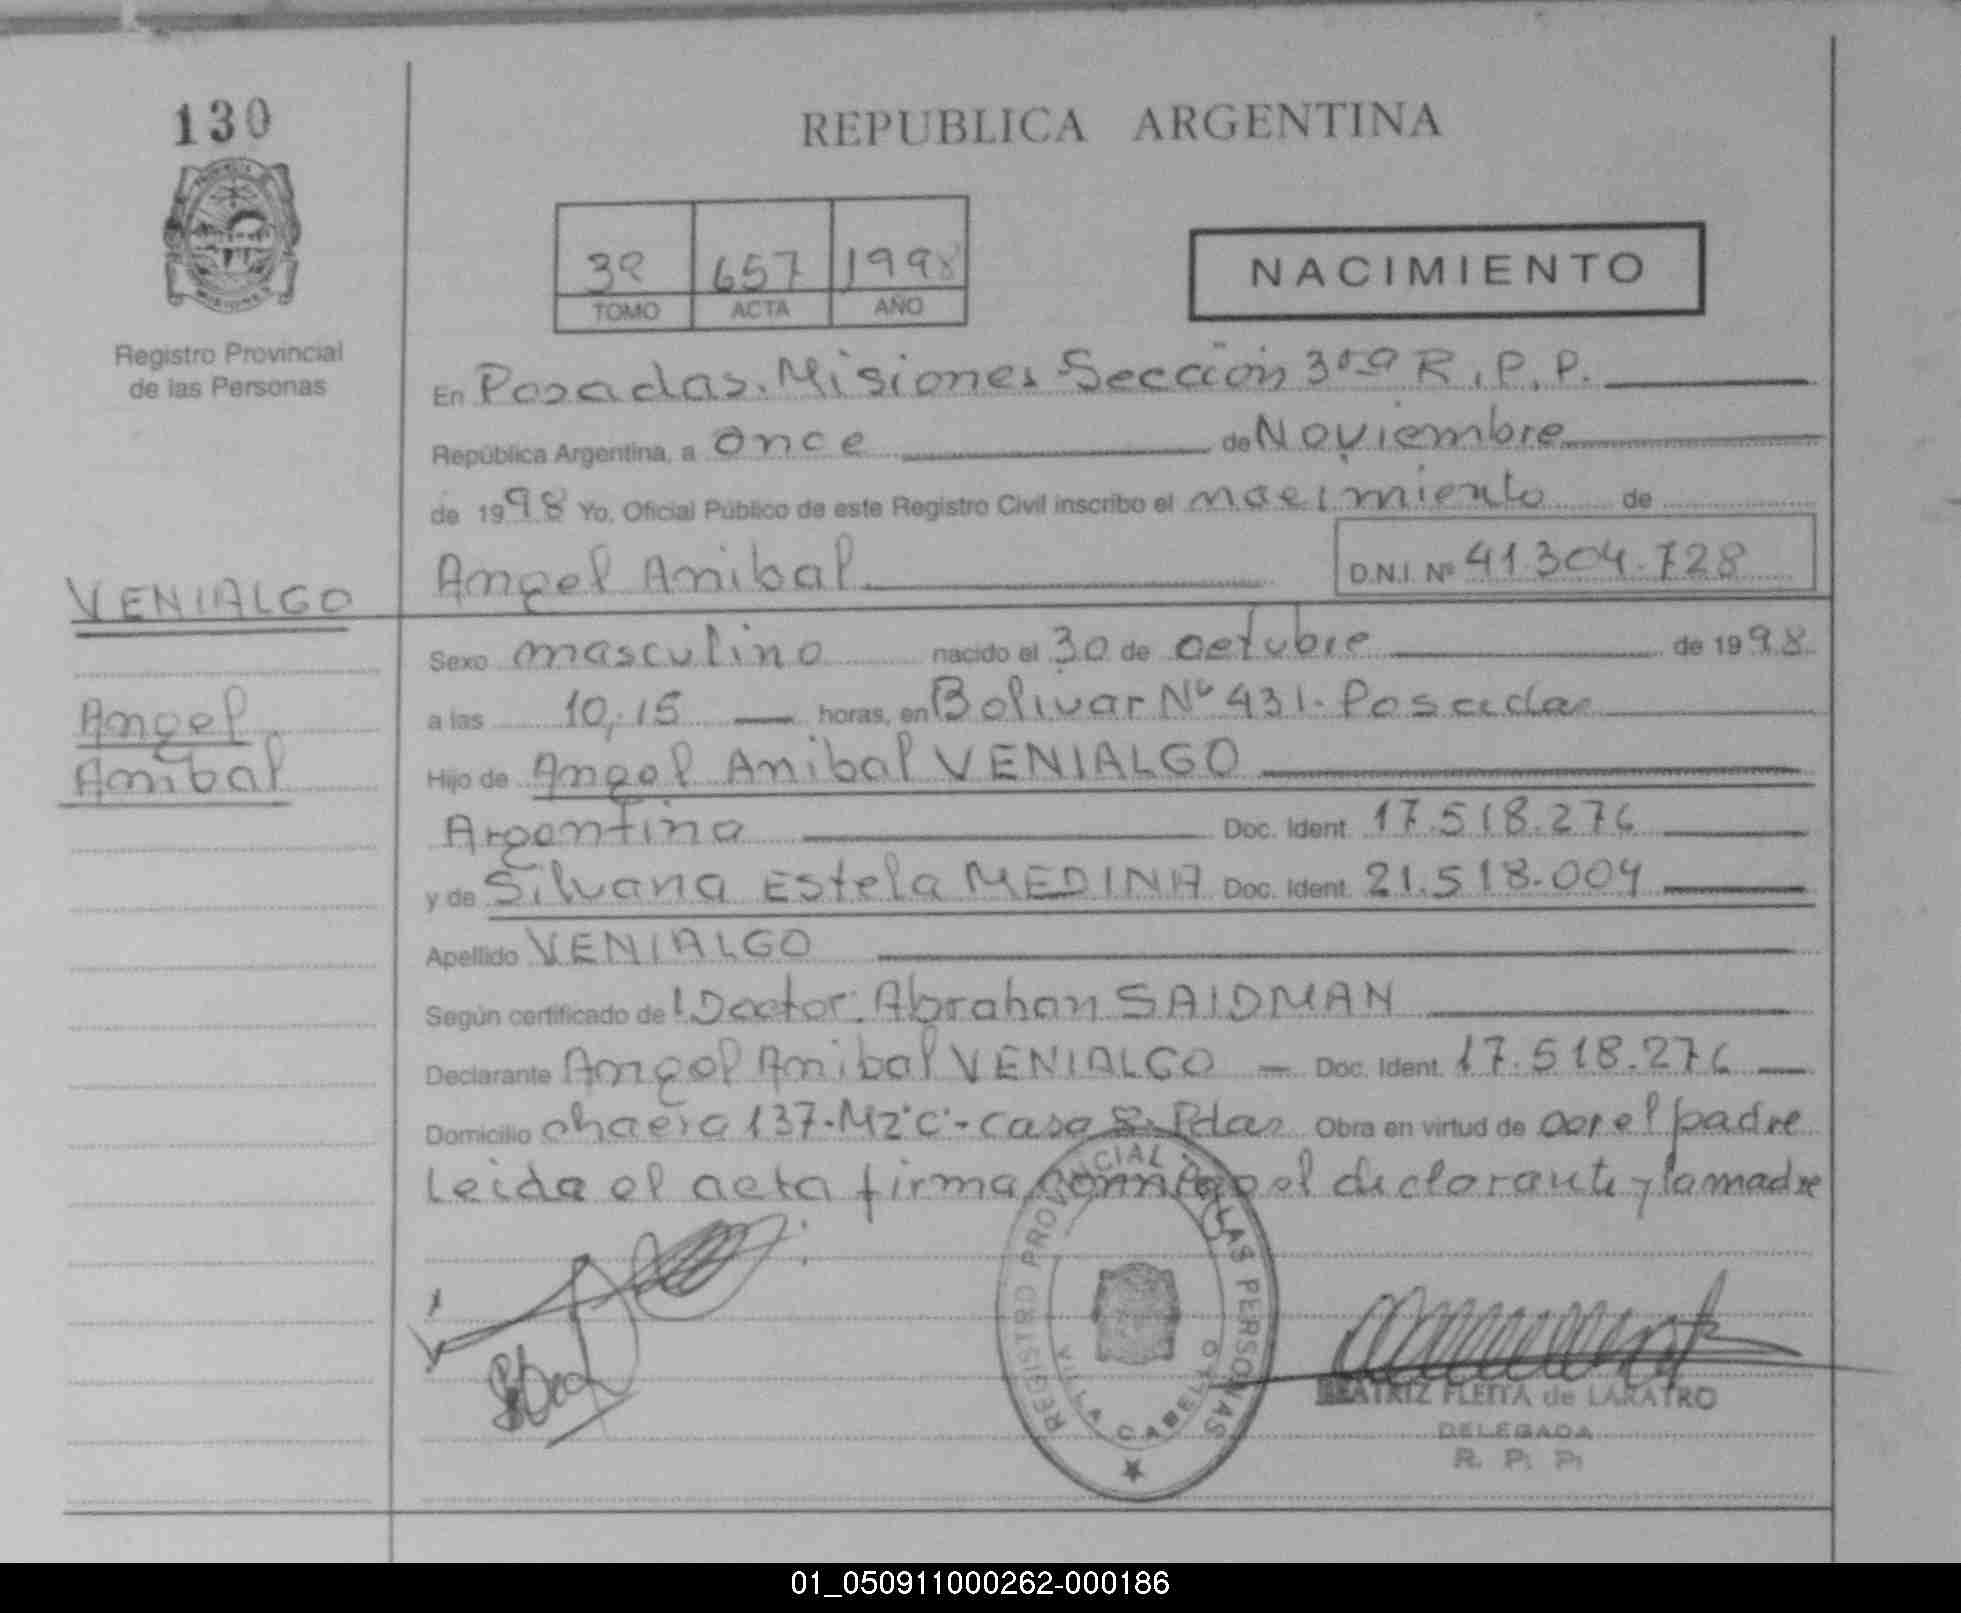 130
REPUBLICA ARGENTINA
3º 657 1998
TOMO ACTA AÑO
NACIMIENTO
Registro Provincial
de las Personas
En Posadas. Misiones Sección 3ra R.P.P.
República Argentina, a once de Noviembre
de 1998 Yo, Oficial Público de este Registro Civil inscribo el nacimiento de
Angel Anibal D.N.I. Nº 41.304.728
VENIALGO
Sexo masculino nacido el 30 de octubre de 1998
Angel
a las 10,15 horas, en Bolivar Nº 431. Posadas
Anibal
Hijo de Angel Anibal VENIALGO
Argentina Doc. Ident. 17.518.276
y de Silvana Estela MEDINA Doc. Ident. 21.518.004
Apellido VENIALGO
Según certificado de l Doctor: Abrahan SAIDMAN
Declarante Angel Anibal VENIALGO Doc. Ident. 17.518.276
Domicilio chacra 137-Mz"C"-casa 8. Pdas Obra en virtud de ser el padre
Leida el acta firma conmigo el declarante y la madre
REGISTRO PROVINCIAL DE LAS PERSONAS
VILLA CABELLO
BEATRIZ FLEITA de LARATRO
DELEGADA
R. P. P.
01_050911000262-000186